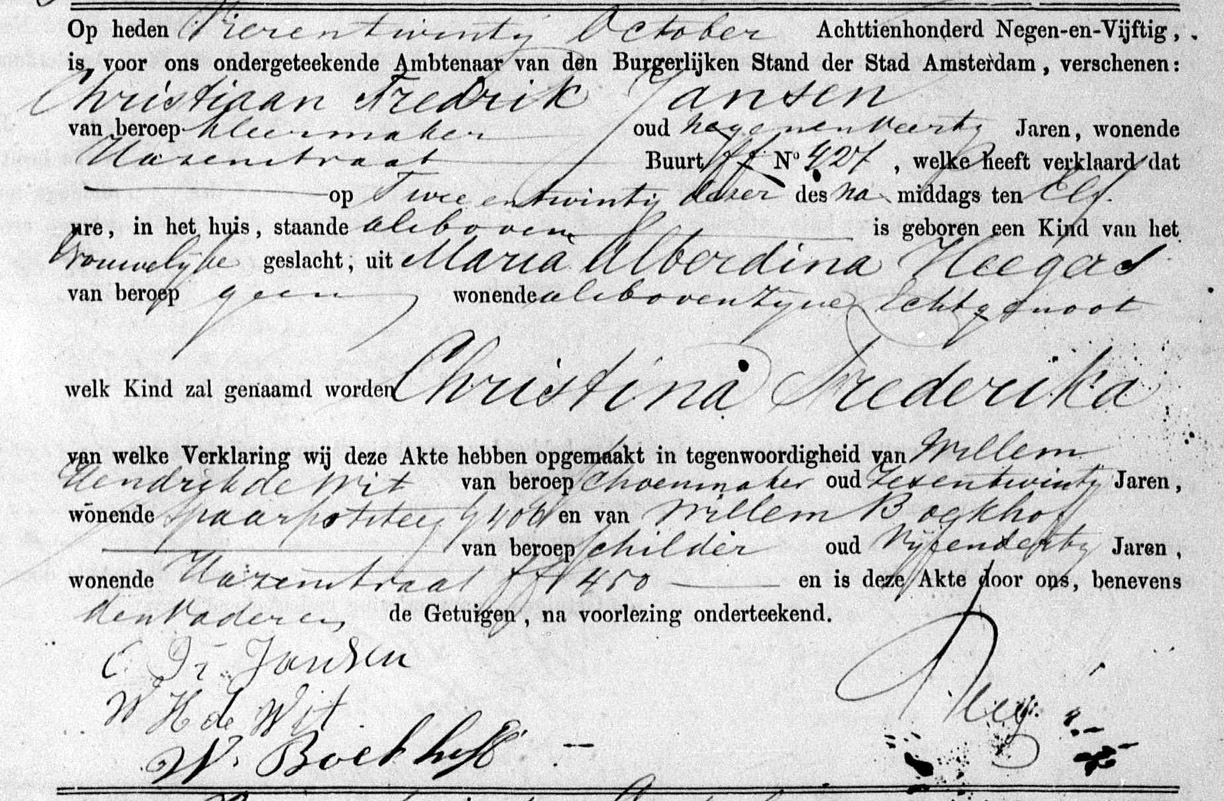 Op heden Vierentwintig October Achttienhonderd Negen-en-Vijftig,
is voor ons ondergeteekende Ambtenaar van den Burgerlijken Stand der Stad Amsterdam, verschenen:
Christiaan Fredrik Jansen
van beroep kleermaker oud negenenveertig Jaren, wonende
Hazenstraat Buurt ff No 427, welke heeft verklaard dat
op Tweeentwintig dezer des na middags ten Elf
ure, in het huis, staande alsboven is geboren een Kind van het
Vrouwelijke geslacht, uit Maria Alberdina Heegers
van beroep geen wonende alsboven zijne Echtgenoot
welk Kind zal genaamd worden Christina Frederika
van welke Verklaring wij deze Akte hebben opgemaakt in tegenwoordigheid van Willem
Hendrik de Wit van beroep schoenmaker oud Zesentwintig Jaren,
wonende Spaarpotsteeg en van Willem Boekhoff
van beroep schilder oud Vijfendertig Jaren,
wonende Hazenstraat ff 450 en is deze Akte door ons, benevens
den Vader en de Getuigen, na voorlezing onderteekend.
C Fr. Jansen
W H de Wit
W. Boekhoff